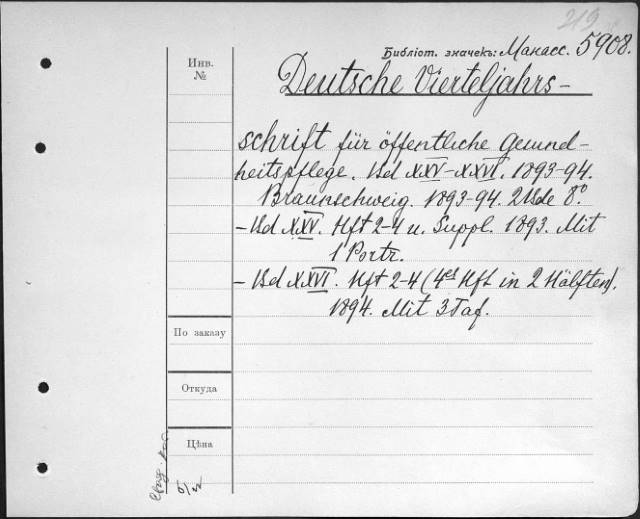 219
Библіот. значекъ: Манасс. 5908.
Инв.
№
Deutsche Vierteljahrs-
schrift für öffentliche Gesund-
heitspflege. Bd XXV-XXVI. 1893-94.
Braunschweig. 1893-94. 2 Bde 8.°
- Bd XXV. Hft 2-4 u. Suppl. 1893. Mit
1 Portr.
- Bd XXVI. Hft 2-4 (4es Hft in 2 Hälften).
1894. Mit 3 Taf.
По заказу
Откуда
Цѣна
б/ц